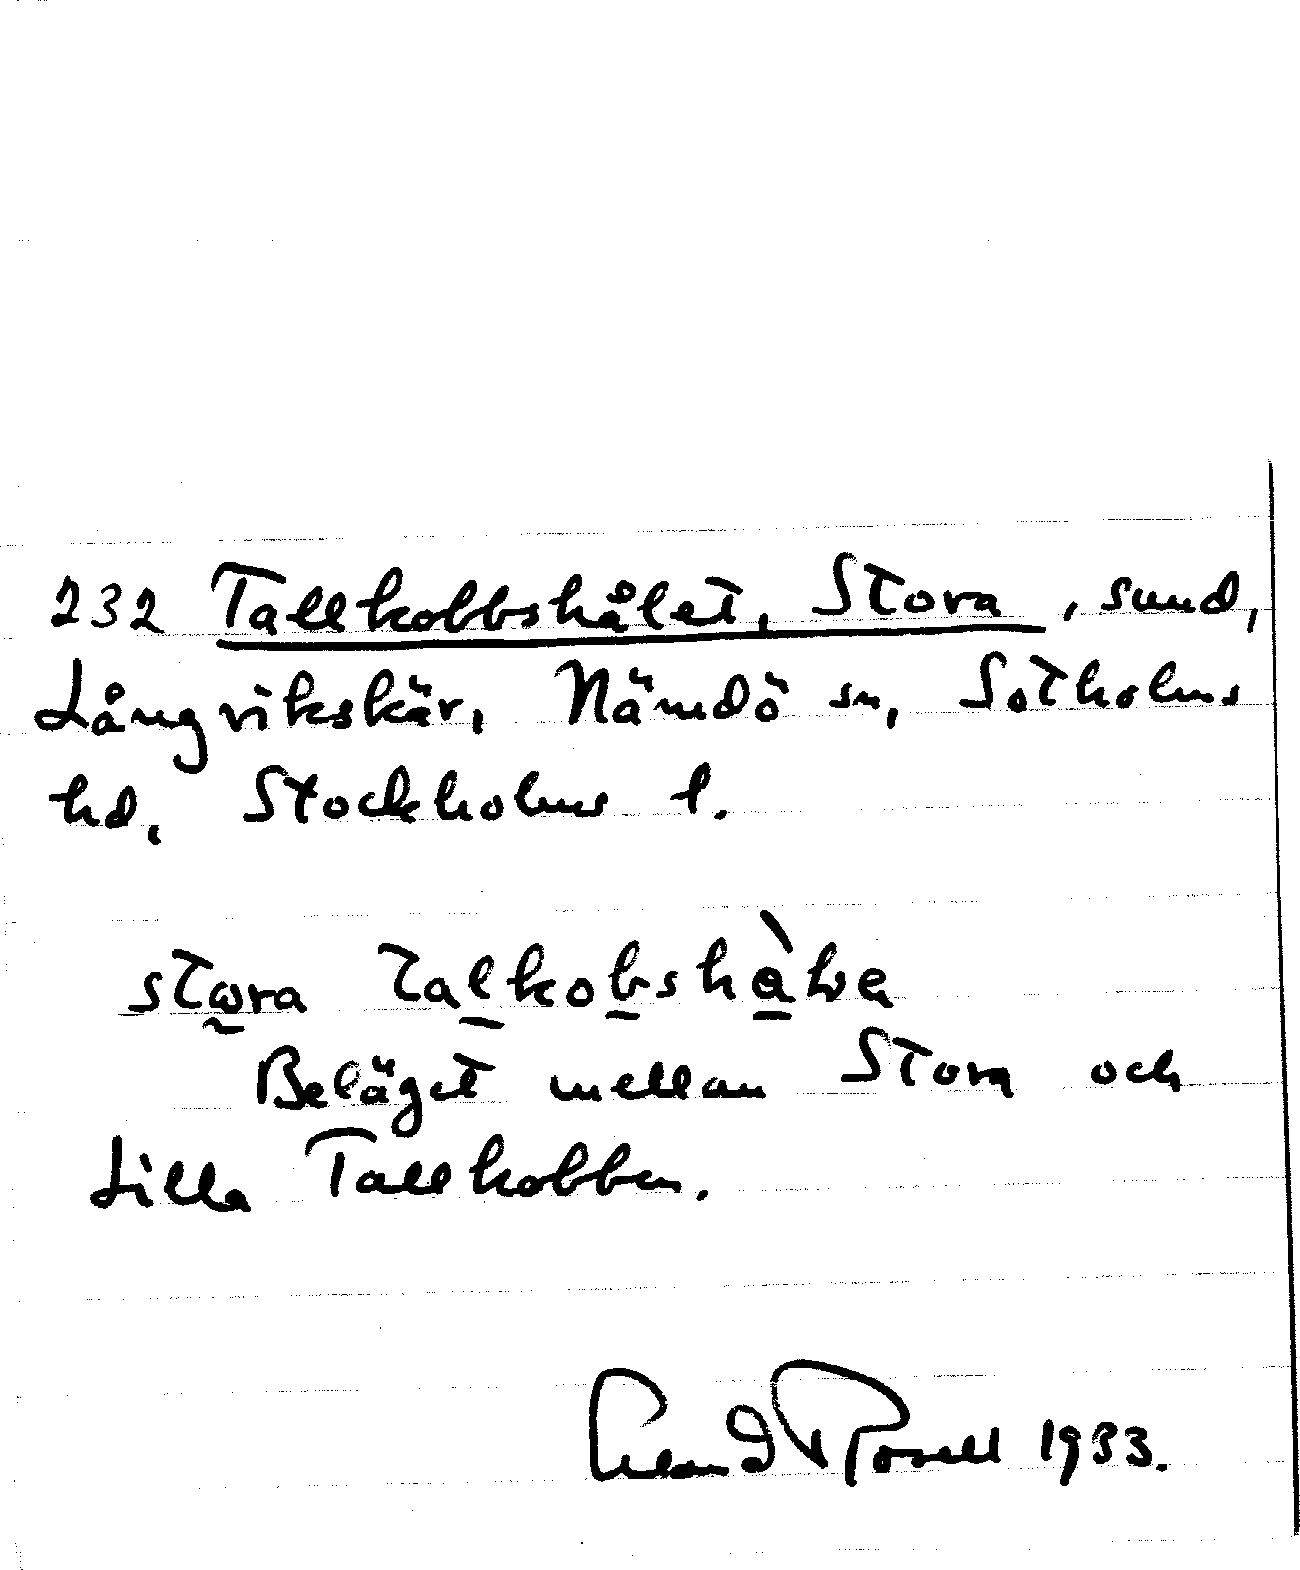 232 Tallkobbshålet, Stora, sund,
Långvikskär, Nämdö sn, Sotholms
hd, Stockholms l.
stωra talkobshàlve
Beläget mellan Stora och
Lilla Tallkobben.
Rosell 1933.